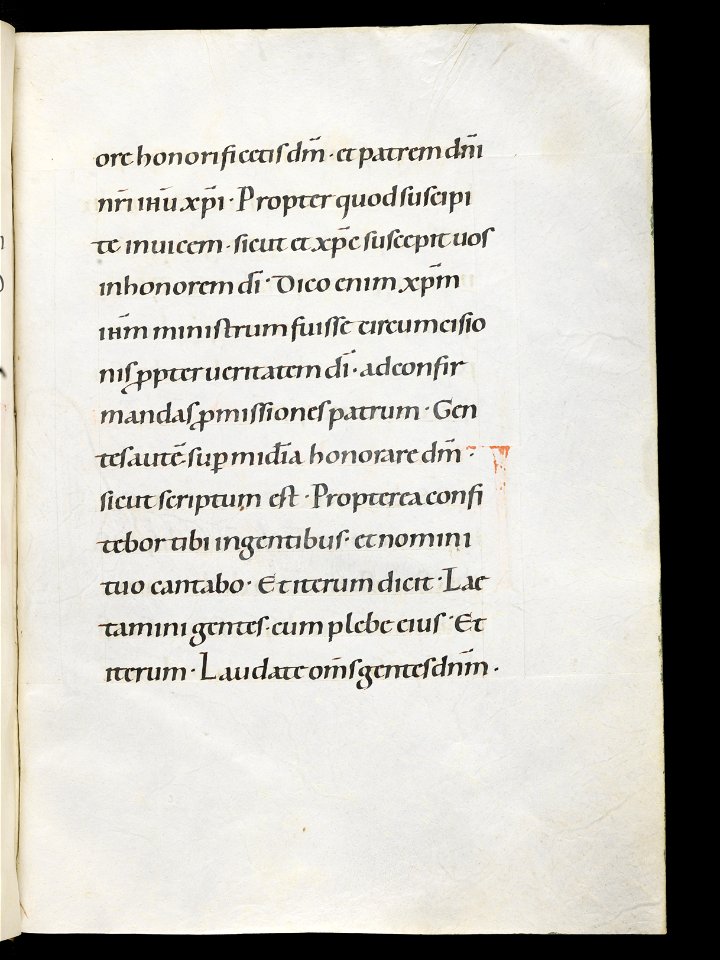 ore honorificetis dm̅ · et patrem dn̅i
nr̅i ihu̅ xp̅i · Propter quod suscipi
te inuicem · sicut et xp̅c suscepit uos
in honorem di̅ · Dico enim xp̅m
ihm̅ ministrum fuisse circumcisio
nis ꝓpter ueritatem di̅ · ad confir
mandas ꝓmissiones patrum · Gen
tes autē sup̱ midi̅a honorare dm̅ ·
sicut scriptum est · Propterea confi
tebor tibi in gentibus · et nomini
tuo cantabo · Et iterum dicit · Lae
tamini gentes · cum plebe eius · Et
iterum · Laudate om̅s gentes dn̅m ·